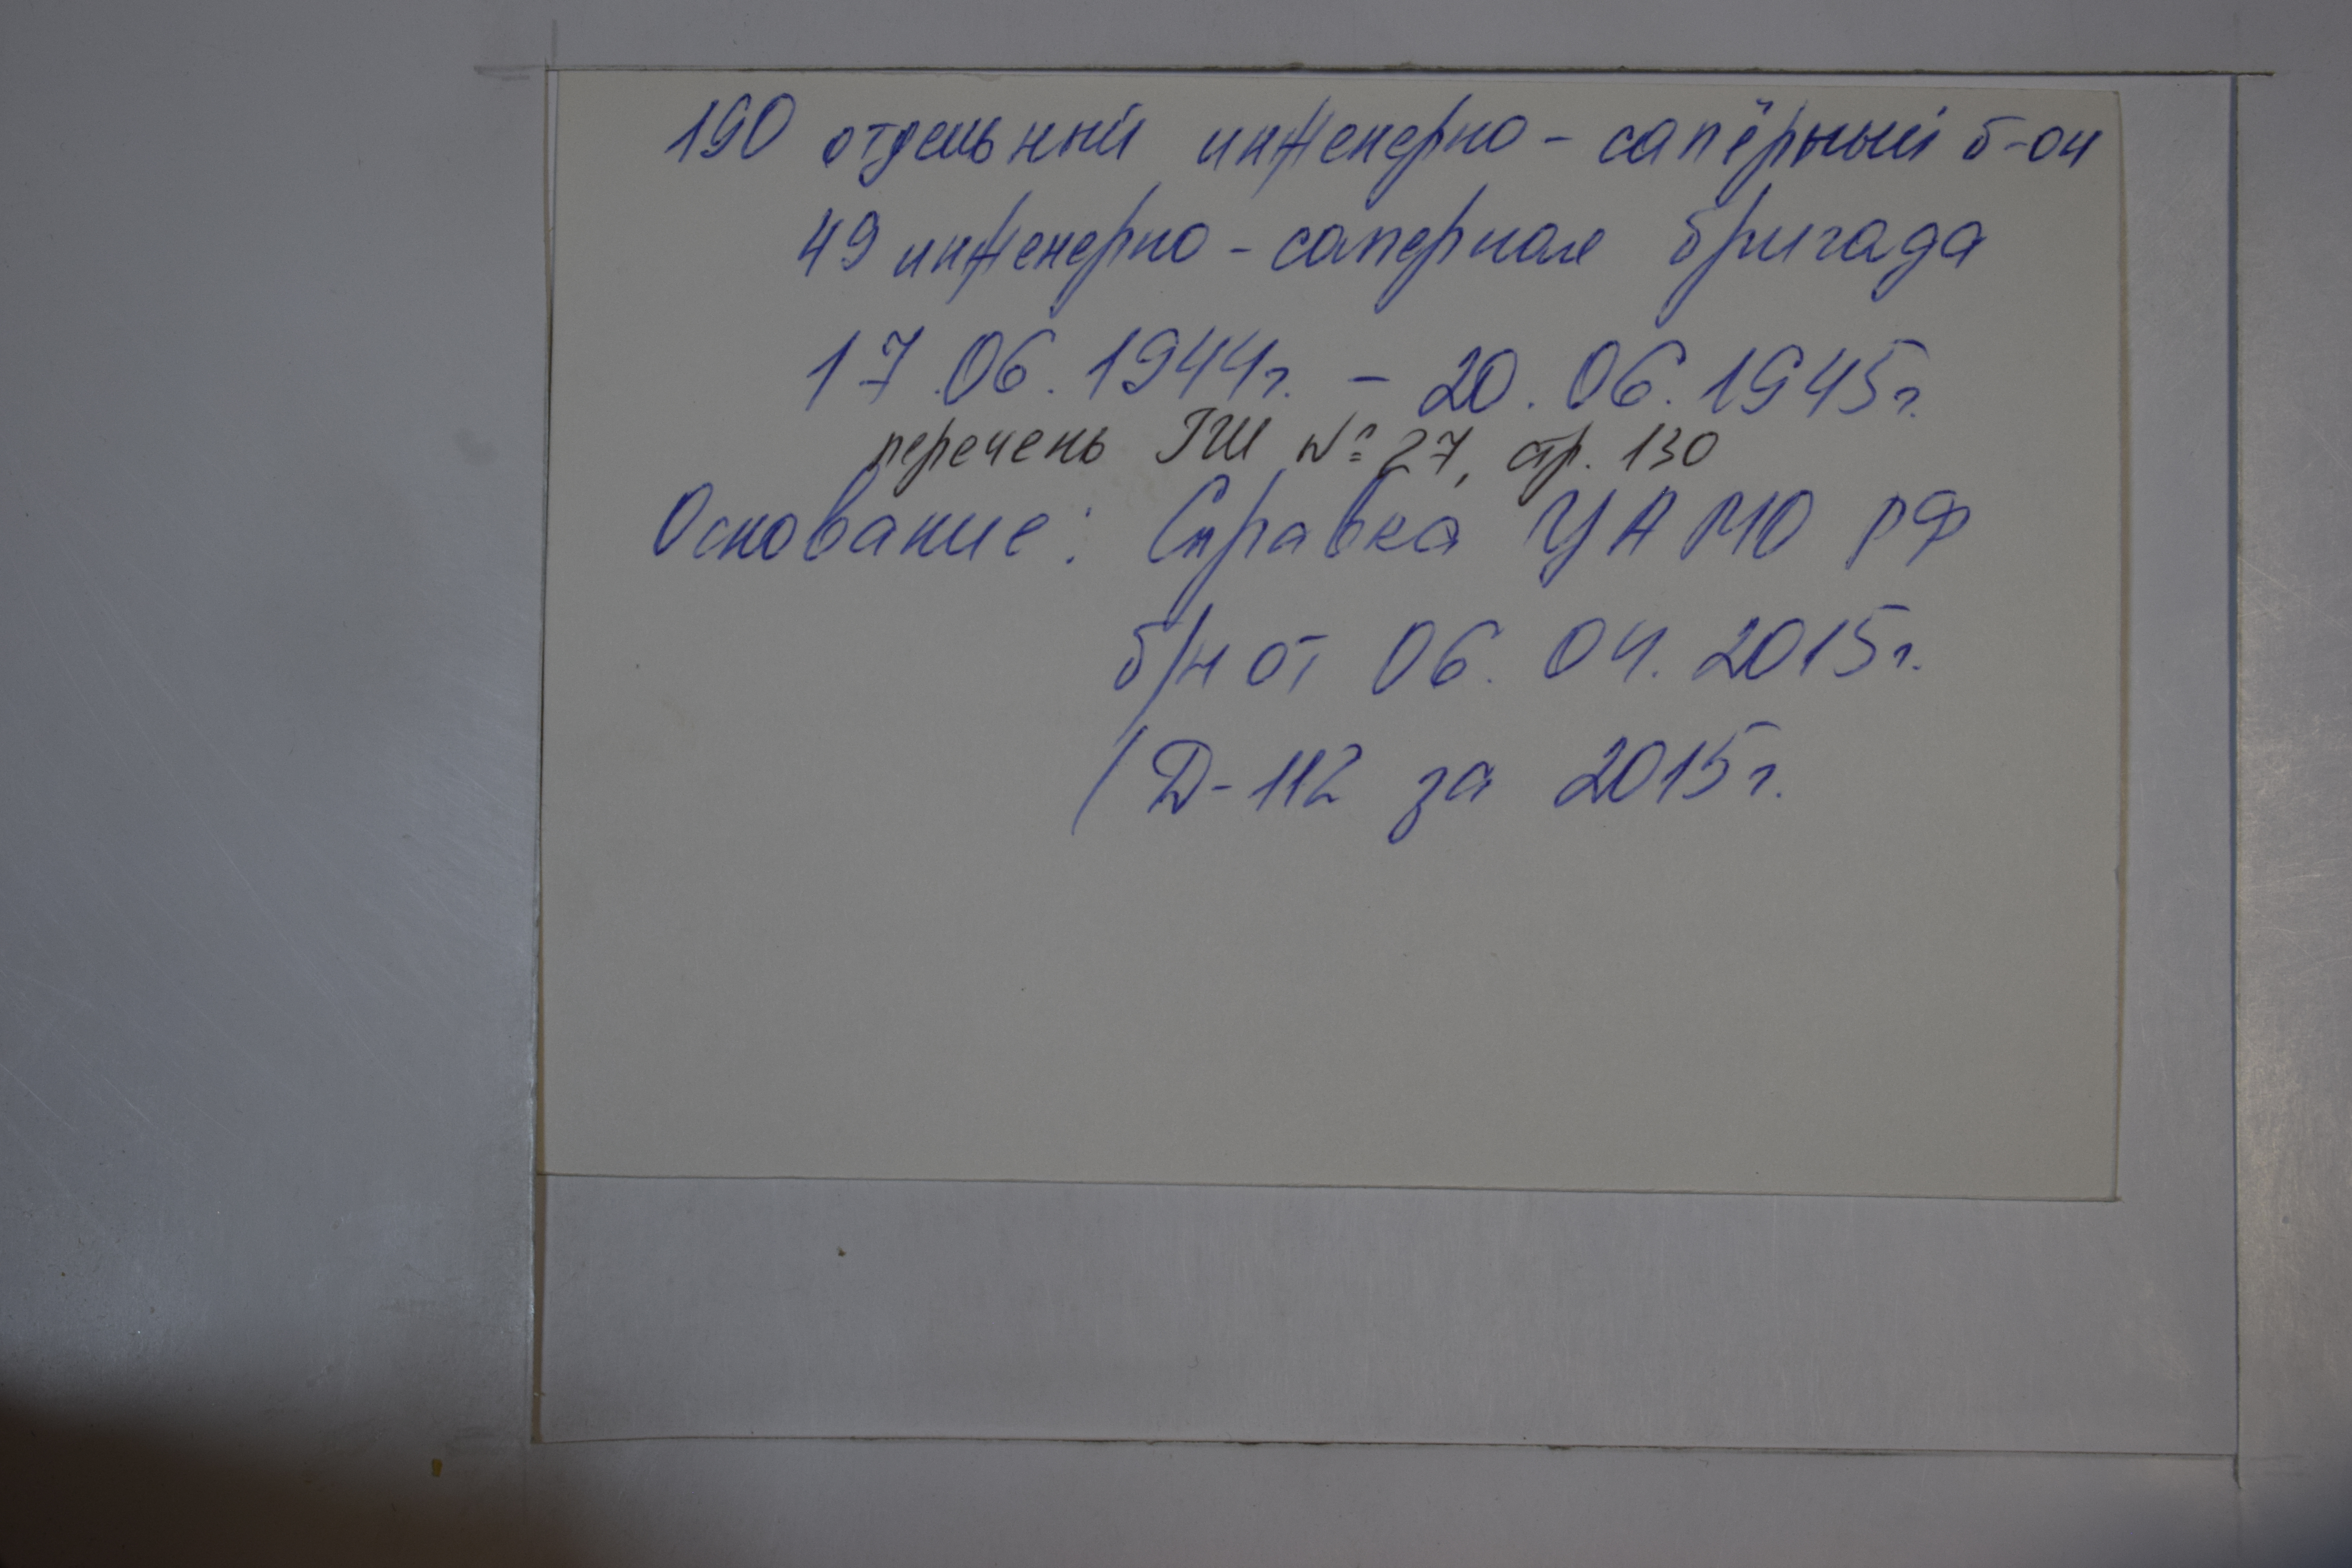 190 отдельный инженерно-сапёрный б-он
49 инженерно-саперная бригада
17.06.1944г. - 20.06.1945г.
перечень ГШ № 27, стр. 130
Основание: Справка ЦАМО РФ
б/н от 06.04.2015г.
(Д-112 за 2015г.